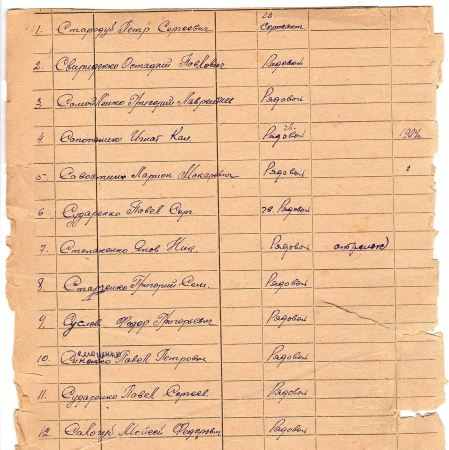 гв.
1. Стародуб Петр Сергеевич Сержант
2. Свириденко Остапий Павлович Рядовой
3. Самойленко Григорий Лаврентиев Рядовой
гв.
4. Сапотенко Игнат Кал. Рядовой
5. Савостин Марион Макарович Рядовой
6 Сударенко Павел Серг. гв. Рядовой
7. Степаненко Яков Ник. Рядовой
8. Старченко Григорий Семи. Рядовой
9. Суслов Федор Григорьевич Рядовой
10. Павел Петрович Рядовой
11. Сударенко Павел Сергеев. Рядовой
12. Мойсей Федорович Рядовой